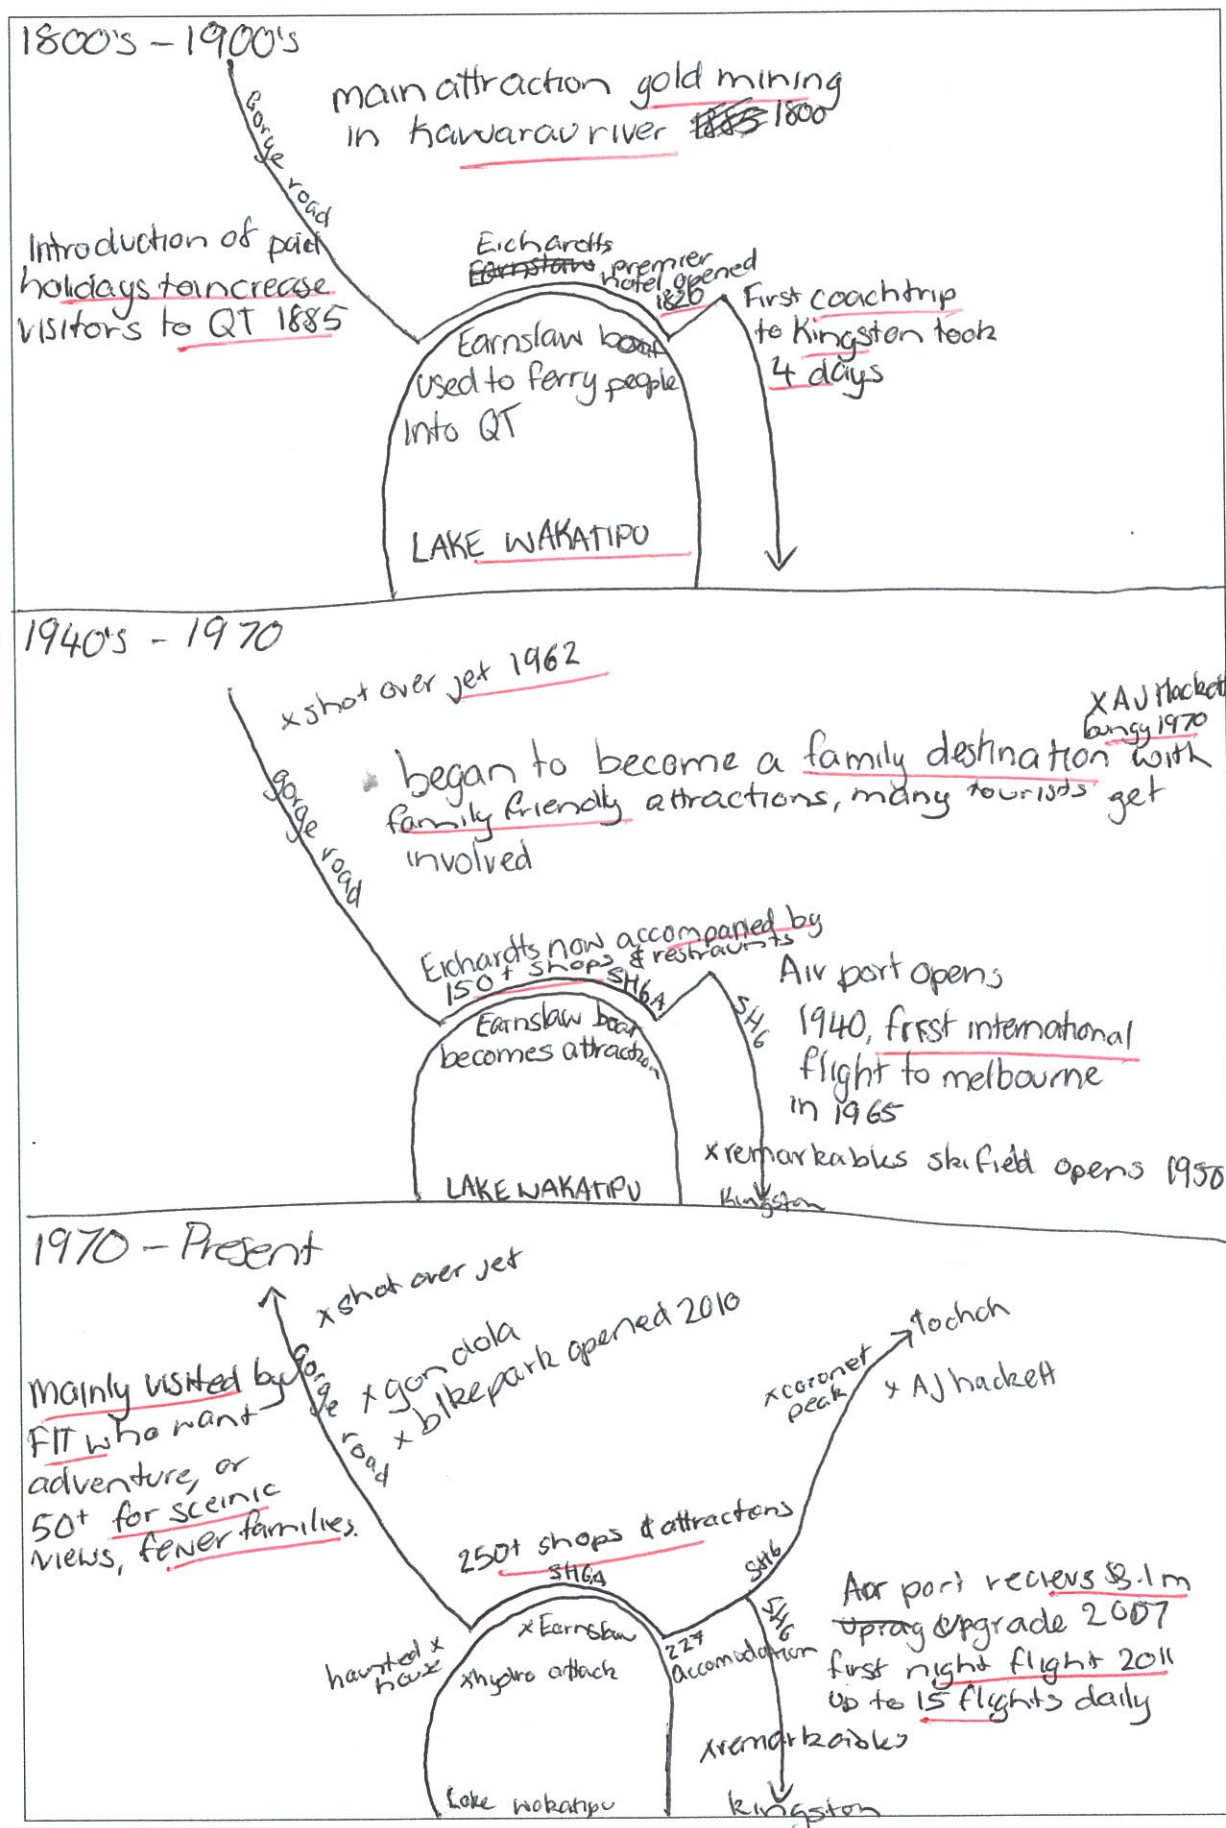 1800's - 1900's
main attraction gold mining
in Kawarau river 1885 1800
Gorge road
Introduction of paid
holidays to increase
visitors to QT 1885
Eichardts
Earnslaw premier
hotel opened
1820
First coach trip
to Kingston took
4 days
Earnslaw boat
used to ferry people
into QT
LAKE WAKATIPU
1940's - 1970
x shot over jet 1962
x AJ Hackett
bungy 1970
gorge road
began to become a family destination with
family friendly attractions, many tourists get
involved
Eichardts now accompanied by
150+ shops & restraunts
SH6A
SH6
Earnslaw boat
becomes attraction
Air port opens
1940, first international
flight to melbourne
in 1965
x remarkables ski field opens 1950
LAKE WAKATIPU
Kingston
1970 - Present
x shot over jet
gorge road
x gondola
x bikepark opened 2010
to chch
x coronet
peak
x AJ hackett
Mainly visited by
FIT who want
adventure, or
50+ for sceinic
views, fewer families.
250+ shops & attractons
SH6A
SH6
SH6
227
accomodation
haunted x
house
x Earnslaw
x hydro attack
Air port recievs $3.1m
uprag upgrade 2007
first night flight 2011
up to 15 flights daily
x remarkables
Lake wakatipu
Kingston